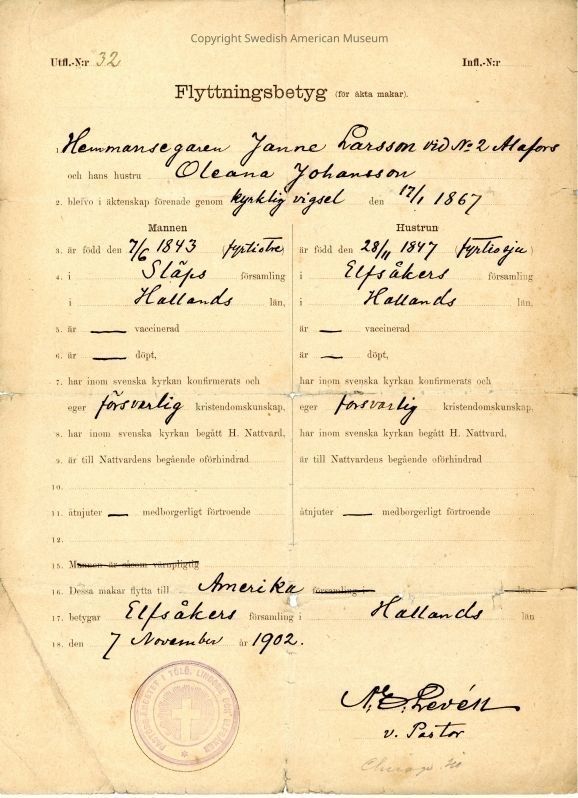 Copyright Swedish American Museum
Utfl.-N:r 32 Infl.-N:r
Flyttningsbetyg (för äkta makar).
1. Hemmansegaren Janne Larsson vid No 2 Alafors
och hans hustru Oleana Johansson
2. blefvo i äktenskap förenade genom kyrklig vigsel den 17/1 1867
Mannen Hustrun
3. är född den 7/6 1843 (fyrtiotre) är född den 28/11 1847 (fyrtiosju)
4. i Släps församling i Elfsåkers församling
i Hallands län, i Hallands län,
5. är — vaccinerad är — vaccinerad
6. är — döpt, är — döpt,
7. har inom svenska kyrkan konfirmerats och har inom svenska kyrkan konfirmerats och
eger försvarlig kristendomskunskap, eger försvarlig kristendomskunskap,
8. har inom svenska kyrkan begått H. Nattvard, har inom svenska kyrkan begått H. Nattvard,
9. är till Nattvardens begående oförhindrad är till Nattvardens begående oförhindrad
10.
11. åtnjuter — medborgerligt förtroende åtnjuter — medborgerligt förtroende
12.
15. Mannen är såsom värnpligtig
16. Dessa makar flytta till Amerika församling i län
17. betygar Elfsåkers församling i Hallands län
18. den 7 November år 1902.
PASTORSÄMBETET I TÖLÖ, LINDOME OCH ELFSÅKER
v. Pastor